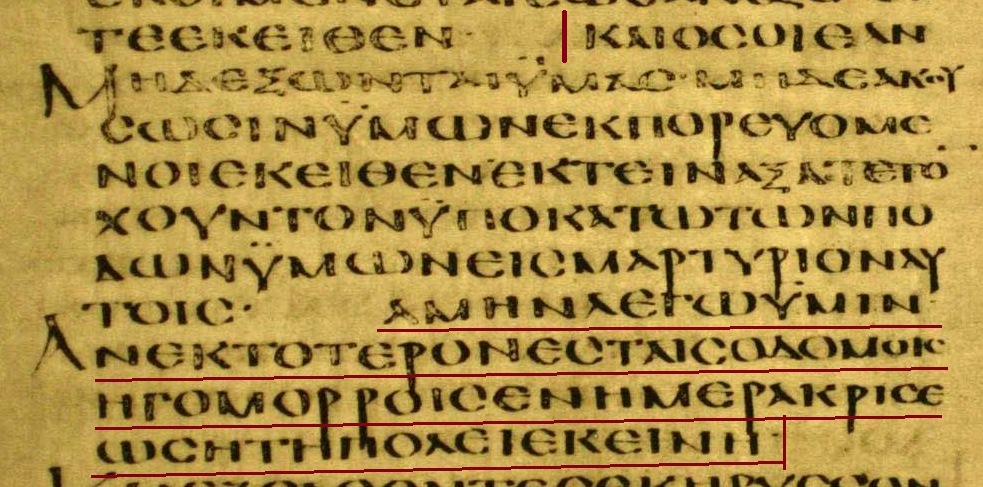 ΤΕΕΚΕΙΘΕΝ· ΚΑΙΟCΟΙΕΑΝ
ΜΗΔΕΞΩΝΤΑΙΫΜΑC·ΜΗΔΕΑΚΟΥ
CΩCΙΝΫΜΩΝΕΚΠΟΡΕΥΟΜΕ
ΝΟΙΕΚΕΙΘΕΝΕΚΤΕΙΝΑΞΑΤΕΤΟ
ΧΟΥΝΤΟΝΫΠΟΚΑΤΩΤΩΝΠΟ
ΔΩΝΫΜΩΝΕΙCΜΑΡΤΥΡΙΟΝΑΥ
ΤΟΙC· ΑΜΗΝΛΕΓΩΫΜΙΝ
ΑΝΕΚΤΟΤΕΡΟΝΕCΤΑΙCΟΔΟΜΟΙC
ΗΓΟΜΟΡΡΟΙCΕΝΗΜΕΡΑΚΡΙCΕ
ΩCΗΤΗΠΟΛΕΙΕΚΕΙΝΗ·